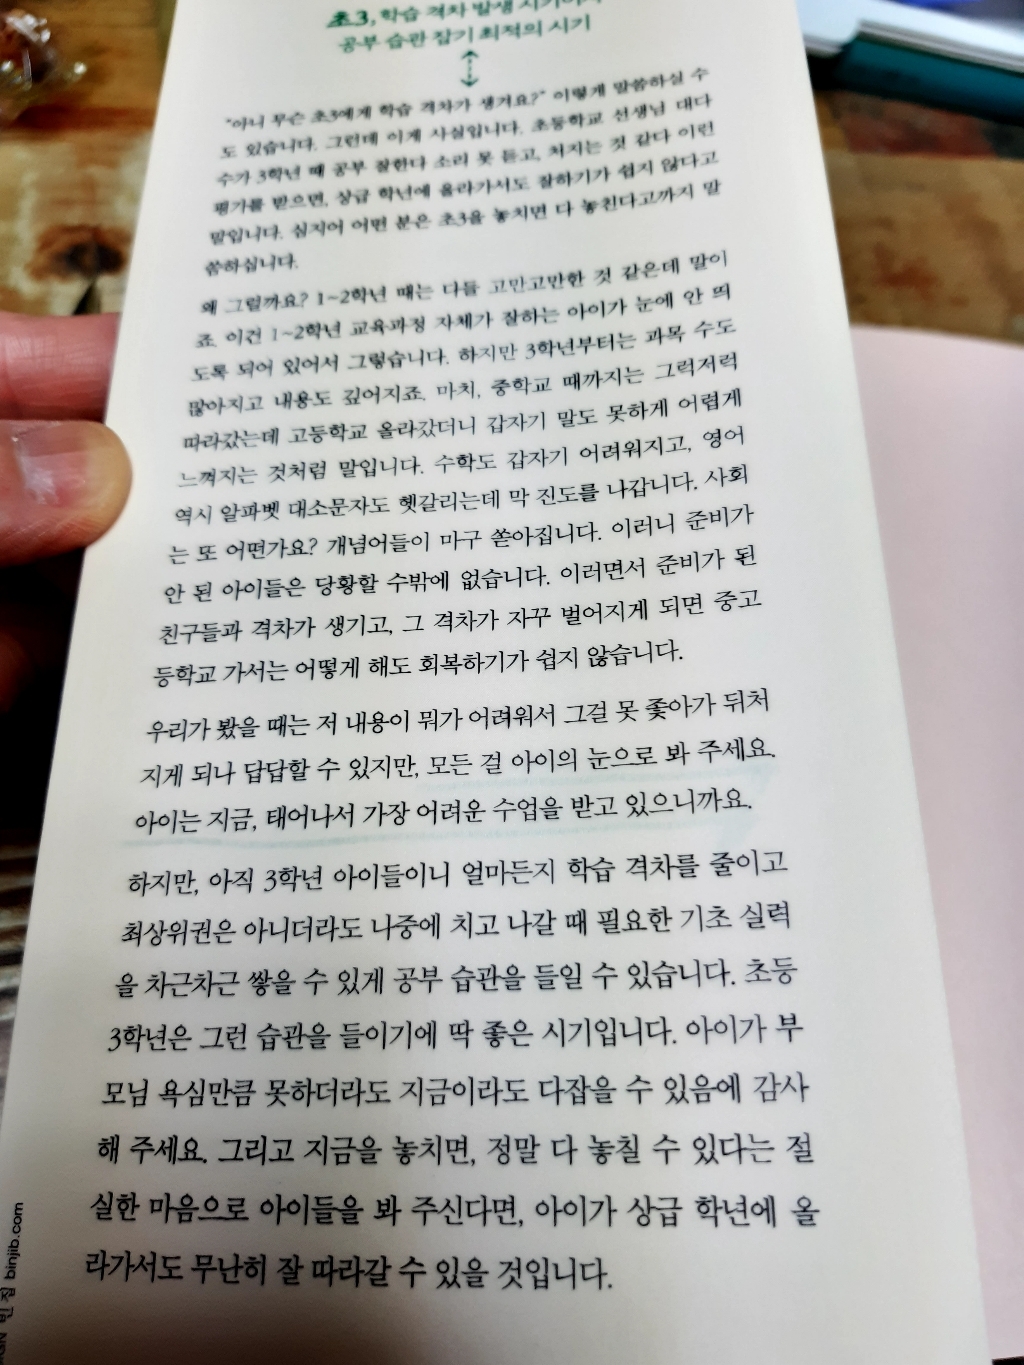 초3, 학습 격차 발생 시기이자
공부 습관 잡기 최적의 시기
“아니 무슨 초3에게 학습 격차가 생겨요?” 이렇게 말씀하실 수
도 있습니다. 그런데 이게 사실입니다. 초등학교 선생님 대다
수가 3학년 때 공부 잘한다 소리 못 듣고, 처지는 것 같다 이런
평가를 받으면, 상급 학년에 올라가서도 잘하기가 쉽지 않다고
말입니다. 심지어 어떤 분은 초3을 놓치면 다 놓친다고까지 말
씀하십니다.
왜 그럴까요? 1~2학년 때는 다들 고만고만한 것 같은데 말이
죠. 이건 1~2학년 교육과정 자체가 잘하는 아이가 눈에 안 띄
도록 되어 있어서 그렇습니다. 하지만 3학년부터는 과목 수도
많아지고 내용도 깊어지죠. 마치, 중학교 때까지는 그럭저럭
따라갔는데 고등학교 올라갔더니 갑자기 말도 못하게 어렵게
느껴지는 것처럼 말입니다. 수학도 갑자기 어려워지고, 영어
역시 알파벳 대소문자도 헷갈리는데 막 진도를 나갑니다. 사회
는 또 어떤가요? 개념어들이 마구 쏟아집니다. 이러니 준비가
안 된 아이들은 당황할 수밖에 없습니다. 이러면서 준비가 된
친구들과 격차가 생기고, 그 격차가 자꾸 벌어지게 되면 중고
등학교 가서는 어떻게 해도 회복하기가 쉽지 않습니다.
우리가 봤을 때는 저 내용이 뭐가 어려워서 그걸 못 좇아가 뒤처
지게 되나 답답할 수 있지만, 모든 걸 아이의 눈으로 봐 주세요.
아이는 지금, 태어나서 가장 어려운 수업을 받고 있으니까요.
하지만, 아직 3학년 아이들이니 얼마든지 학습 격차를 줄이고
최상위권은 아니더라도 나중에 치고 나갈 때 필요한 기초 실력
을 차근차근 쌓을 수 있게 공부 습관을 들일 수 있습니다. 초등
3학년은 그런 습관을 들이기에 딱 좋은 시기입니다. 아이가 부
모님 욕심만큼 못하더라도 지금이라도 다잡을 수 있음에 감사
해 주세요. 그리고 지금을 놓치면, 정말 다 놓칠 수 있다는 절
실한 마음으로 아이들을 봐 주신다면, 아이가 상급 학년에 올
라가서도 무난히 잘 따라갈 수 있을 것입니다.
빈집 binjib.com